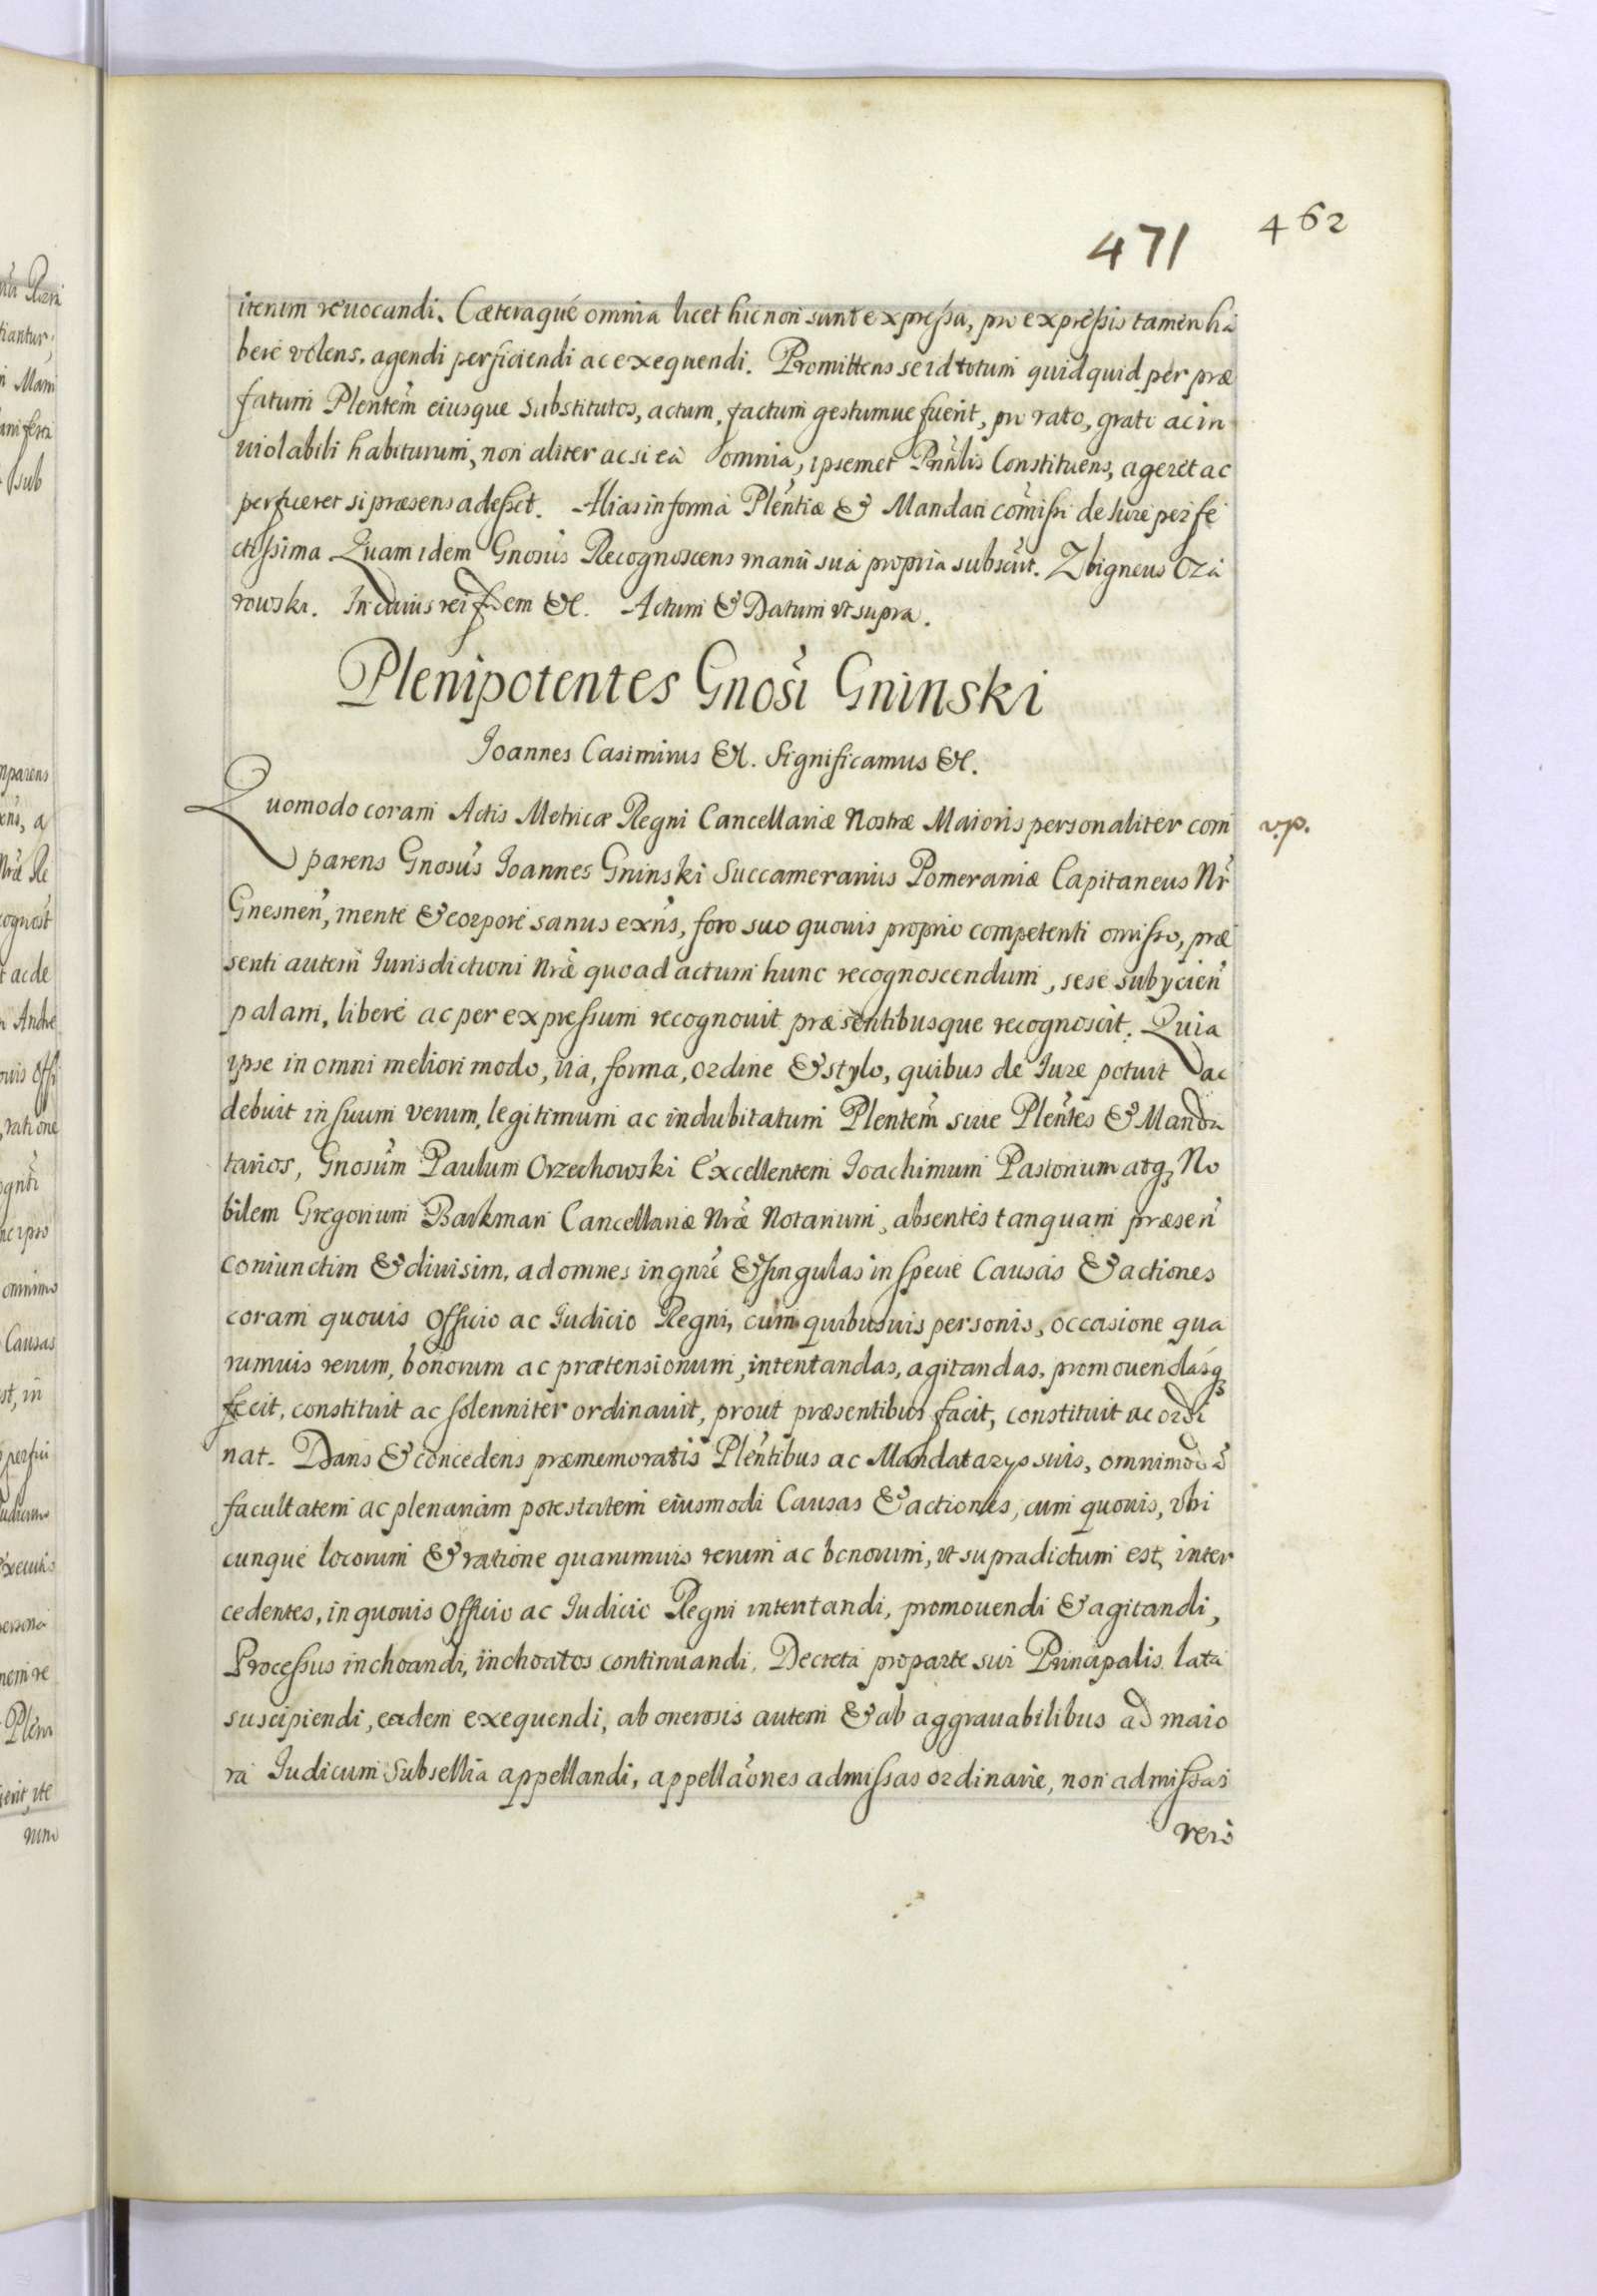 471 462
iterum reuocandi. Cæteraque omnia licet hic non sunt expressa, pro expressis tamen ha
bere volens, agendi perficiendi ac exequendi. Promittens se id totum quidquid per præ
fatum Plentem eiusque Substitutos, actum, factum gestumue fuerit, pro rato, grato ac in
uiolabili habiturum, non aliter ac si ea omnia, ipsemet Prinlis Constituens, ageret ac
perficeret si præsens adesset. Alias in forma Plentiæ & Mandati comissi de Iure perfe
ctissima Quam idem Gnosus Recognoscens manu sua propria subscrit. Zbigneus Oza
rowski. In cuius rei fidem &c. Actum & Datum vt supra.
Plenipotentes Gnosi Gninski
Joannes Casimirus &c. Significamus &c.
Quomodo coram Actis Metricæ Regni Cancellariæ Nostræ Maioris personaliter com
v.p.
parens Gnosus Joannes Gninski Succamerarius Pomeraniæ Capitaneus Nr
Gnesnen, mente & corpore sanus exns, foro suo quouis proprio competenti omisso, præ
senti autem Iurisdictioni Nræ quoad actum hunc recognoscendum, sese subycien
palam, libere ac per expressum recognouit præsentibusque recognoscit. Quia
ipse in omni meliori modo, uia, forma, ordine & stylo, quibus de Iure potuit ac
debuit in suum verum, legitimum ac indubitatum Plentem siue Plentes & Manda
tarios, Gnosum Paulum Orzechowski Excellentem Joachimum Pastorium atq No
bilem Gregorium Barkman Cancellariæ Nræ Notarium, absentes tanquam præsen
coniunctim & diuisim, ad omnes in gnre & singulas in specie Causas & actiones
coram quouis Officio ac Iudicio Regni, cum quibusuis personis, occasione qua
rumuis rerum, bonorum ac prætensionum, intentandas, agitandas, promouendasq
fecit, constituit ac solenniter ordinauit, prout præsentibus facit, constituit ac ordi
nat. Dans & concedens præmemoratis Plentibus ac Mandatarys suis, omnimoda
facultatem ac plenariam potestatem eiusmodi Causas & actiones, cum quouis, vbi
cunque locorum & ratione quarumuis rerum ac bonorum, vt supradictum est, inter
cedentes, in quouis Officio ac Iudicio Regni intentandi, promouendi & agitandi,
Processus inchoandi, inchoatos continuandi. Decreta pro parte sui Principalis lata
suscipiendi, eadem exequendi, ab onerosis autem & ab aggrauabilibus ad maio
ra Iudicum Subsellia appellandi, appellaones admissas ordinarie, non admissas
veris